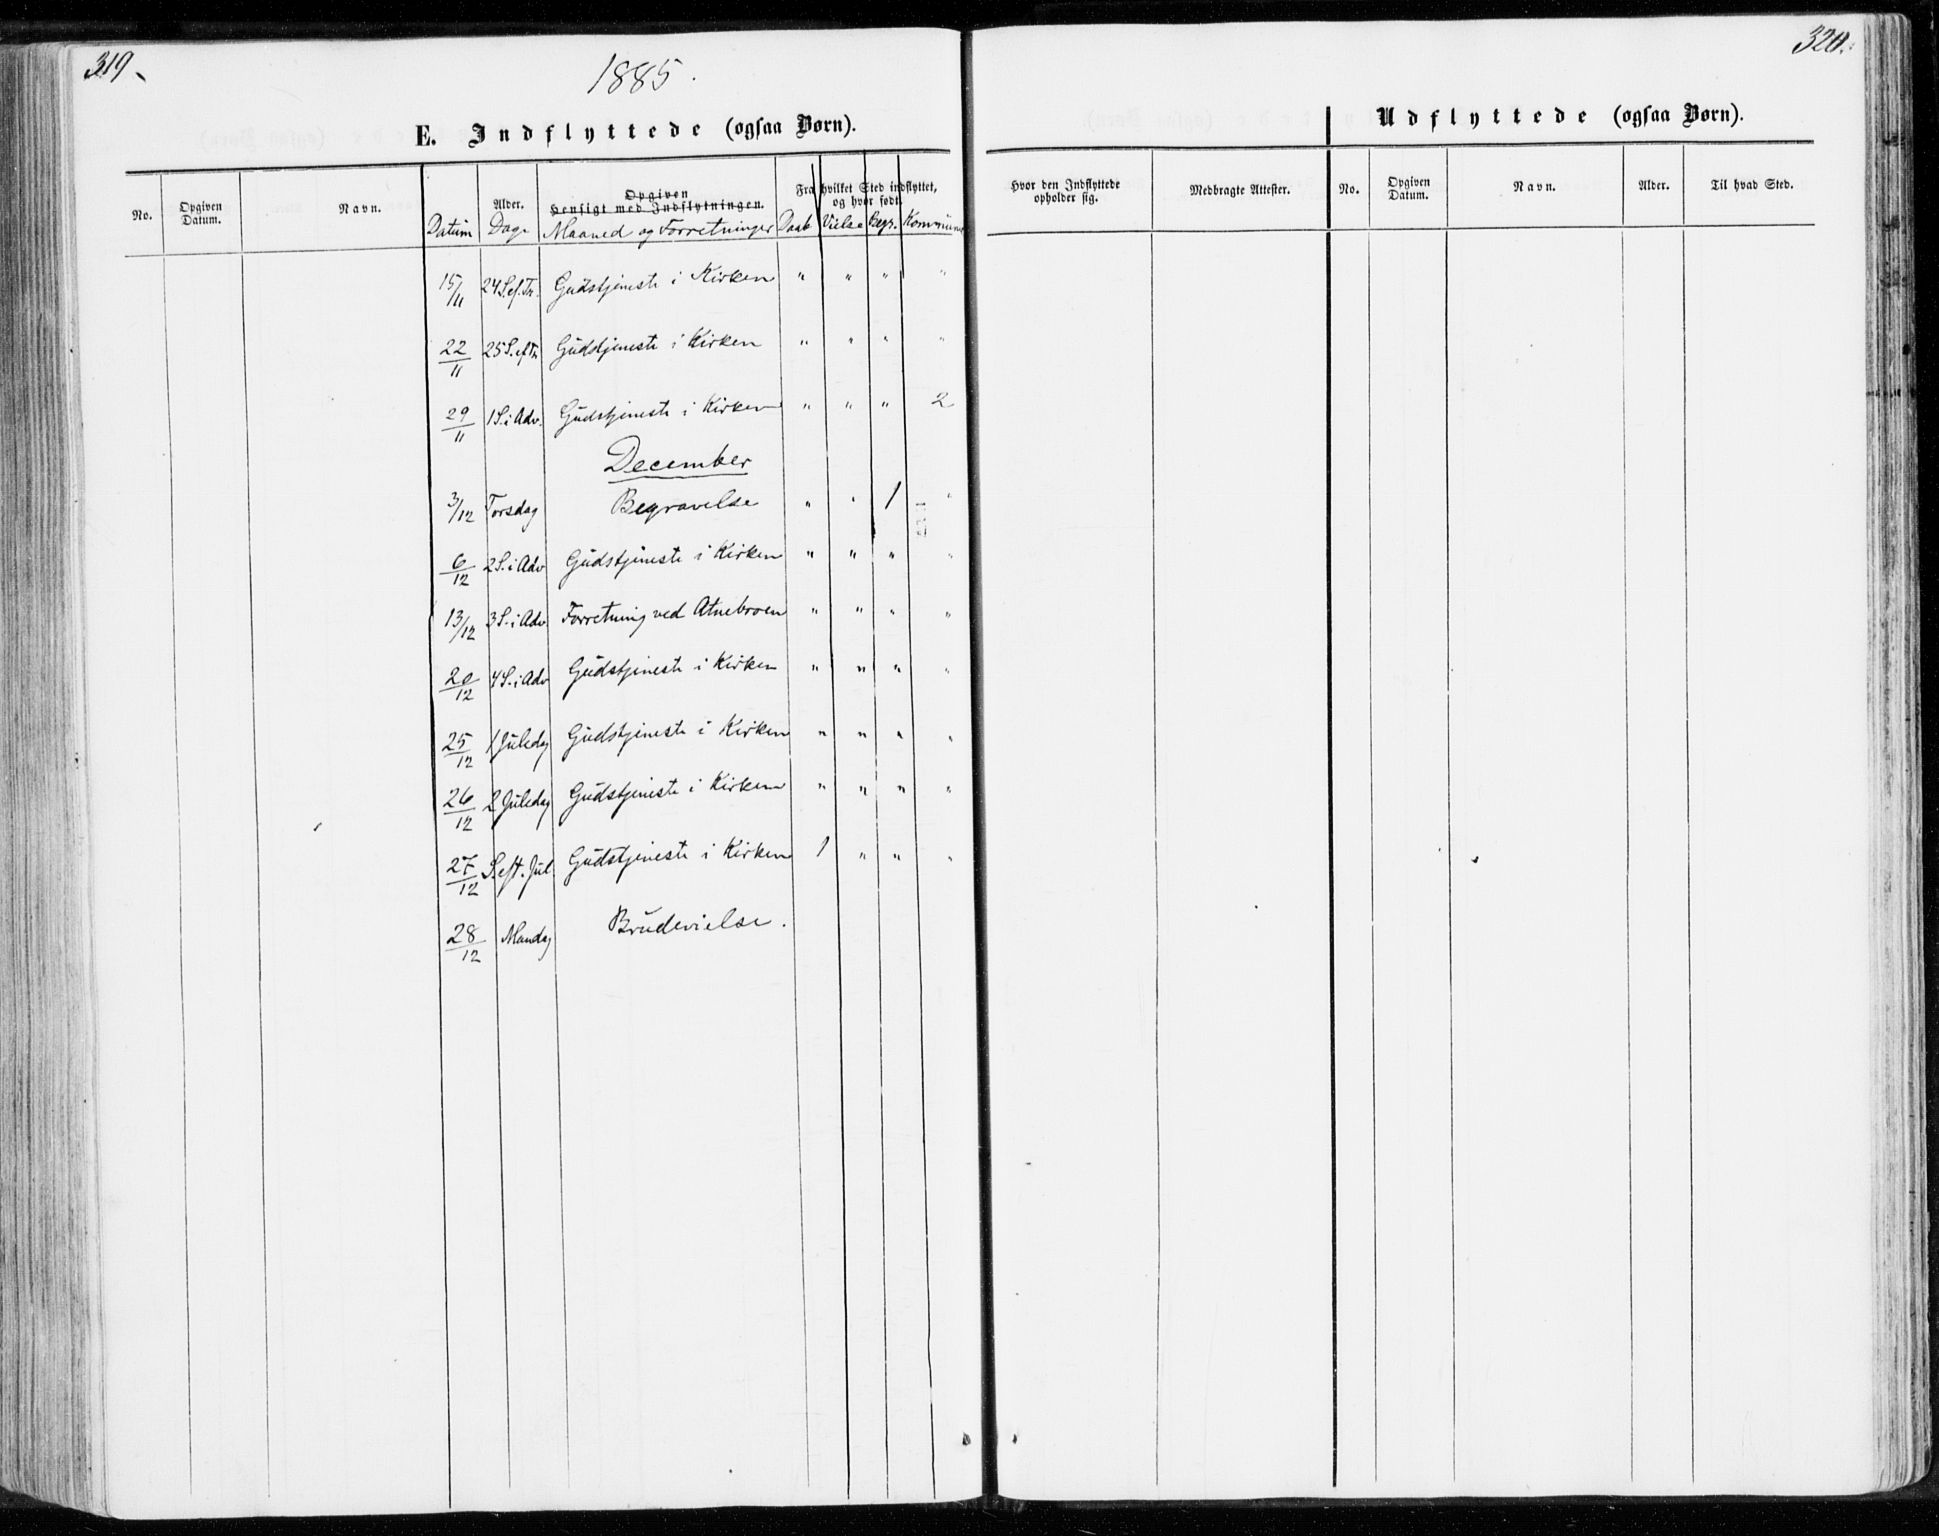 319.
1885.
E. Indflyttede (ogsaa Børn).
No. | Opgiven Datum. | Navn. | Alder. | Opgiven Hensigt med Indflytningen. | Fra hvilket Sted indflyttet, og hvor født.
Datum | Dage | Maaned og Forretninger | Daab | Vielse | Begr. | Kommun
15/11 | 24 S. ef. Tr. | Gudstjeneste i Kirken | " | " | " | "
22/11 | 25 S. ef Tr. | Gudstjeneste i Kirken | " | " | " | "
29/11 | 1 S. i Adv. | Gudstjeneste i Kirken | " | " | " | 2
December
3/12 | Torsdag | Begravelse | " | " | 1 | "
6/12 | 2 S. i Adv | Gudstjeneste i Kirken | " | " | " | "
13/12 | 3 S. i Adv. | Forretning ved Atnebroen | " | " | " | "
20/12 | 4 S. i Adv | Gudstjeneste i Kirken | " | " | " | "
25/12 | 1 Juledag | Gudstjeneste i Kirken | " | " | " | "
26/12 | 2 Juledag | Gudstjeneste i Kirken | " | " | " | "
27/12 | S. eft. Jul. | Gudstjeneste i Kirken | 1 | " | " | "
28/12 | Mandag | Brudevielse.
320.
Udflyttede (ogsaa Børn).
Hvor den Indflyttede opholder sig. | Medbragte Attester. | No. | Opgiven Datum. | Navn. | Alder. | Til hvad Sted.